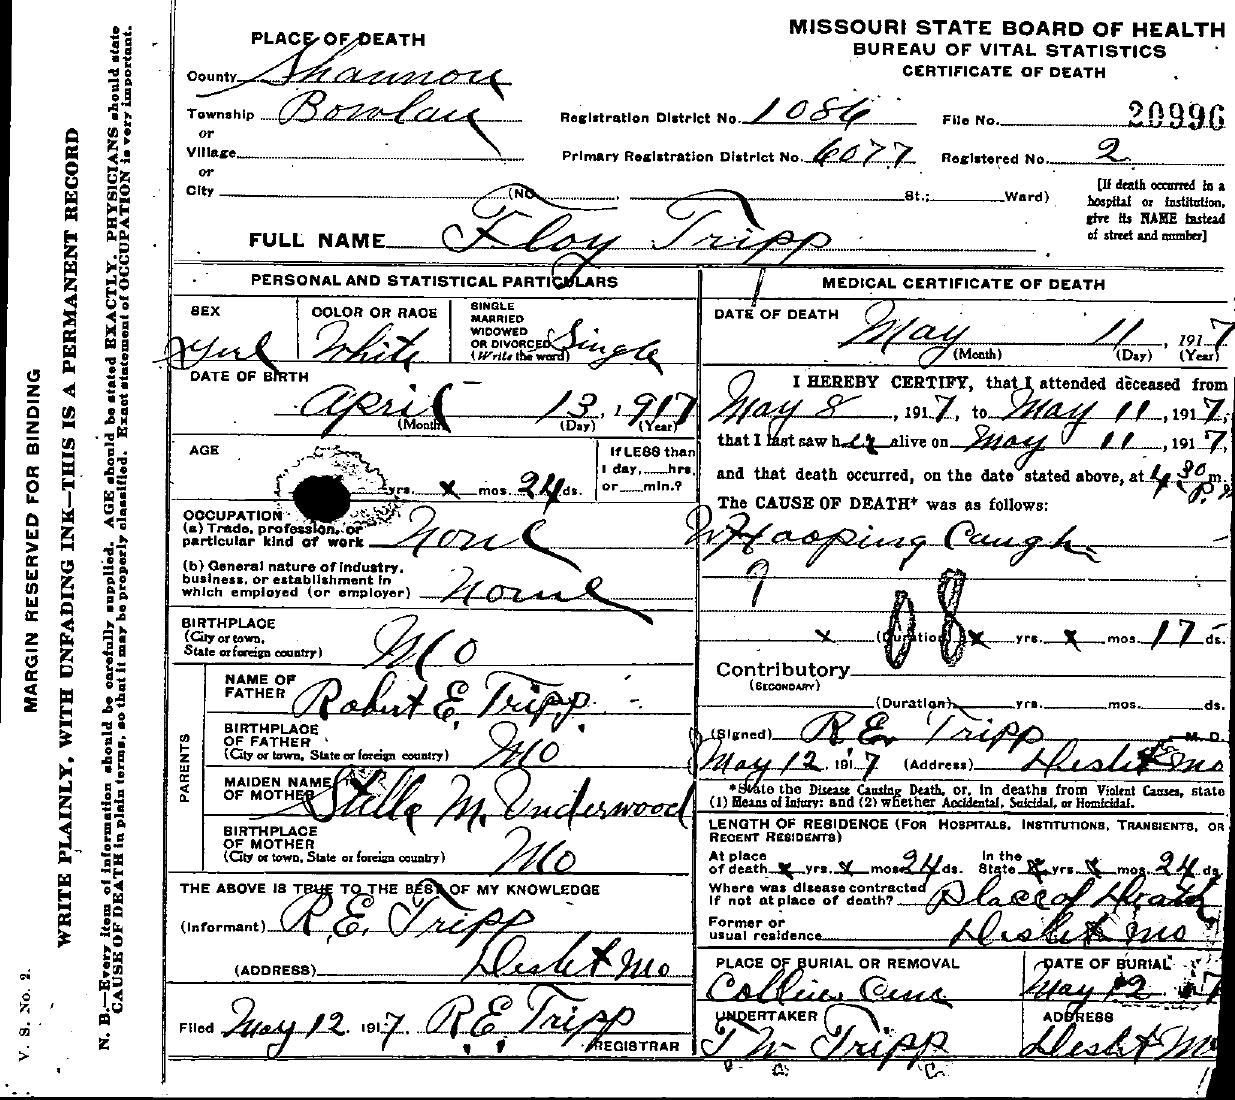 MISSOURI STATE BOARD OF HEALTH
BUREAU OF VITAL STATISTICS
CERTIFICATE OF DEATH
PLACE OF DEATH
County Shannon
Township Bowlan
or
Village
or
City (No. St.; Ward)
Registration District No. 1086
File No. 20996
Primary Registration District No. 6077
Registered No. 2
[If death occurred in a
hospital or institution,
give its NAME instead
of street and number]
FULL NAME Floy Tripp
PERSONAL AND STATISTICAL PARTICULARS
SEX
Girl
COLOR OR RACE
White
SINGLE
MARRIED
WIDOWED
OR DIVORCED
(Write the word)
Single
DATE OF BIRTH
April 13, 1917
(Month) (Day) (Year)
AGE
yrs. x mos. 24 ds.
If LESS than
1 day, hrs.
or min.?
OCCUPATION
(a) Trade, profession, or
particular kind of work None
(b) General nature of industry,
business, or establishment in
which employed (or employer) None
BIRTHPLACE
(City or town,
State or foreign country) Mo
PARENTS
NAME OF
FATHER Robert E. Tripp
BIRTHPLACE
OF FATHER
(City or town, State or foreign country) Mo
MAIDEN NAME
OF MOTHER Stella M. Underwood
BIRTHPLACE
OF MOTHER
(City or town, State or foreign country) Mo
THE ABOVE IS TRUE TO THE BEST OF MY KNOWLEDGE
(Informant) R.E. Tripp
(ADDRESS) Deslet Mo
Filed May 12 1917 R E Tripp
REGISTRAR
MEDICAL CERTIFICATE OF DEATH
DATE OF DEATH
May 11, 1917
(Month) (Day) (Year)
I HEREBY CERTIFY, that I attended deceased from
May 8, 1917, to May 11, 1917,
that I last saw her alive on May 11, 1917,
and that death occurred, on the date stated above, at 4 30 P. m.
The CAUSE OF DEATH* was as follows:
Whooping Caugh
9
08
x (Duration) x yrs. x mos. 17 ds.
Contributory
(SECONDARY)
(Duration) yrs. mos. ds.
(Signed) R.E. Tripp M. D.
May 12, 1917 (Address) Deslet Mo
*State the Disease Causing Death, or, in deaths from Violent Causes, state
(1) Means of Injury: and (2) whether Accidental, Suicidal, or Homicidal.
LENGTH OF RESIDENCE (FOR HOSPITALS, INSTITUTIONS, TRANSIENTS, OR
RECENT RESIDENTS)
At place
of death x yrs. x mos. 24 ds.
In the
State x yrs. x mos. 24 ds.
Where was disease contracted
if not at place of death? Place of Death
Former or
usual residence Deslet Mo
PLACE OF BURIAL OR REMOVAL
DATE OF BURIAL
May 12 7
UNDERTAKER
T W Tripp
ADDRESS
Deslet Mo
MARGIN RESERVED FOR BINDING
WRITE PLAINLY, WITH UNFADING INK—THIS IS A PERMANENT RECORD
N. B.—Every item of information should be carefully supplied. AGE should be stated EXACTLY. PHYSICIANS should state
CAUSE OF DEATH in plain terms, so that it may be properly classified. Exact statement of OCCUPATION is very important.
V. S. No. 2.